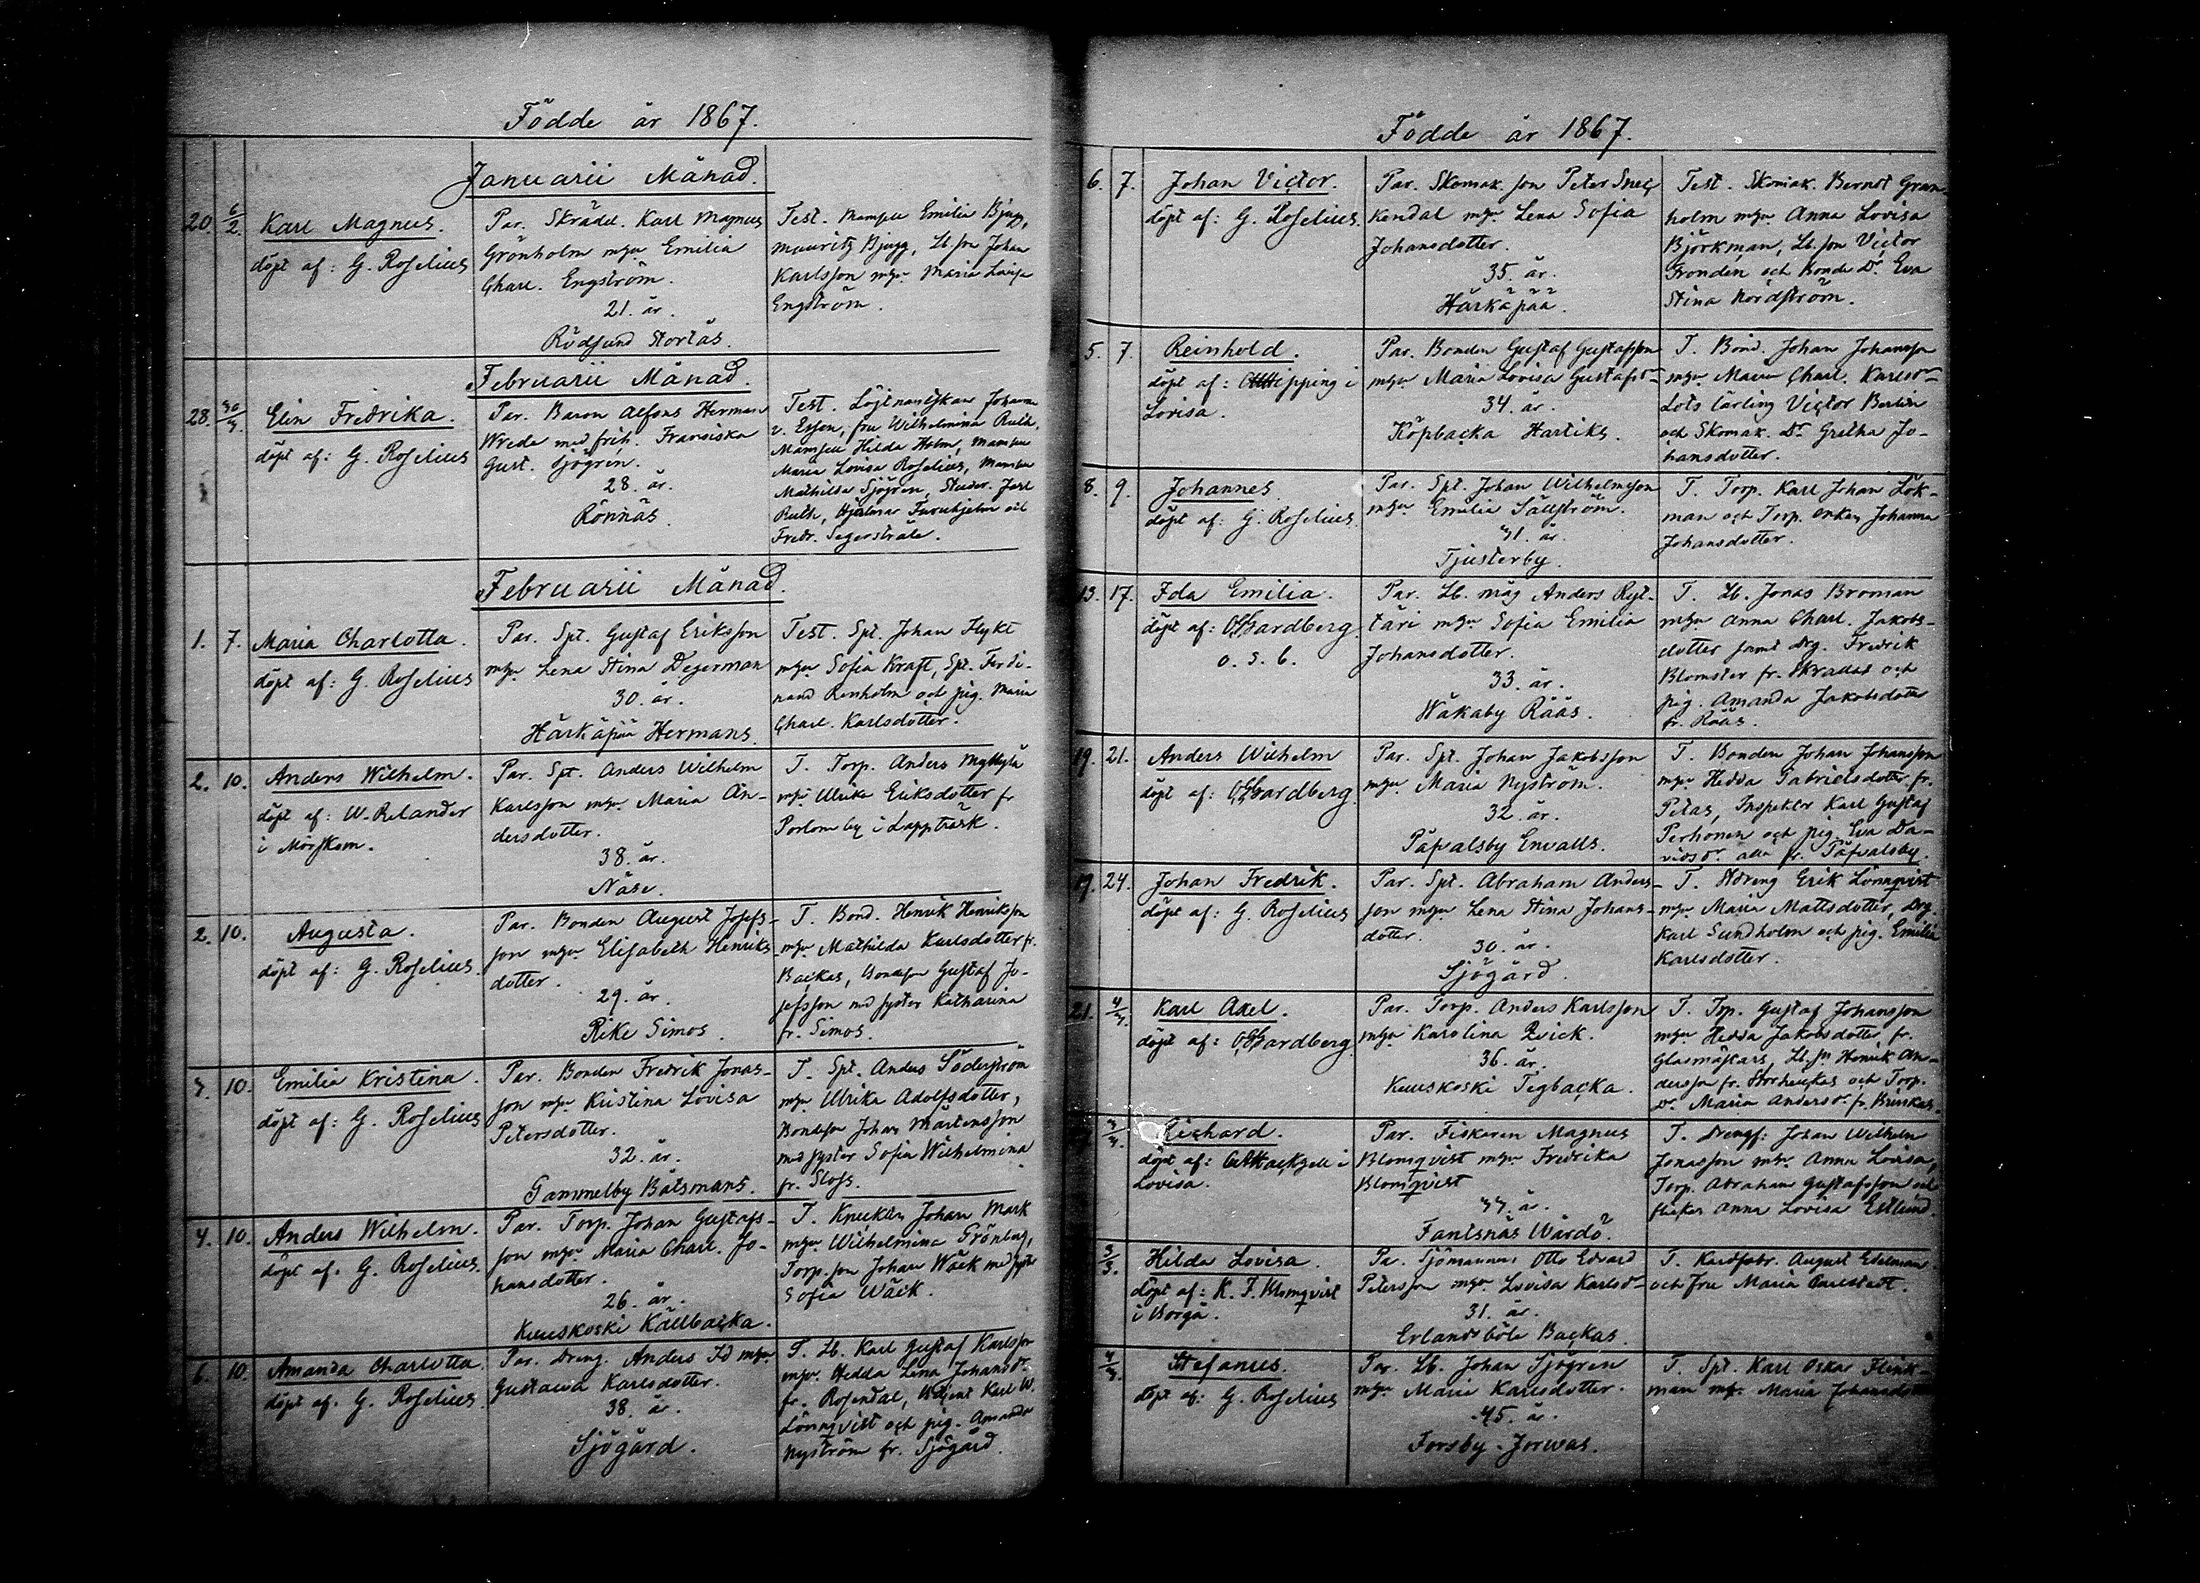 Födde år 1867.
Januarii Månad.
20. 6/2. Karl Magnus.
döpt af: G. Roselius
Par. Skrädd. Karl Magnus
Grönholm mhu Emilia
Charl. Engström.
21. år.
Rödsund Stortås.
Test. Mamsell Emilia Bjugg,
Mauritz Bjugg, Lb. son Johan
Karlsson mhu Maria Lovisa
Engström.
Februarii Månad.
28. Elin Fredrika.
döpt af: G. Roselius
Par. Baron Alfons Herman
Wrede med frih. Fransiska
Gust. Sjögren.
28. år.
Rönnäs.
Test. Löjtnantskan Johanna
v. Essen, fru Wilhelmina Ruth,
Mamsell Hilda Holm, Mamsell
Maria Lovisa Roselius, Mamsell
Mathilda Sjögren, Studer. Jarl
Ruth, Hjalmar Furuhjelm och
Fredr. Segerstråle.
Februarii Månad.
1. 7. Maria Charlotta.
döpt af: G. Roselius
Par. Spt. Gustaf Eriksson
mhu Lena Stina Degerman
30. år.
Härkäpää Hermans.
Test. Spt. Johan Flykt
mhu Sofia Kraft, Spt. Ferdi-
nand Renholm och pig. Maria
Charl. Karlsdotter.
2. 10. Anders Wilhelm.
döpt af: W. Relander
i Mörskom.
Par. Spt. Anders Wilhelm
Karlsson mhu Maria An-
dersdotter.
38. år.
Näse.
T. Torp. Anders
mhu Ulrika Eriksdotter fr
Porlom by i Lappträsk.
2. 10. Augusta.
döpt af: G. Roselius.
Par. Bonden August Josefs-
son mhu Elisabeth Henriks
dotter.
29. år.
Rike Simos.
T. Bond. Henrik Henriksson
mhu Mathilda Karlsdotter fr.
Backas, Bondeson Gustaf Jo-
sefsson med syster Katharina
fr. Simos.
3. 10. Emilia Kristina.
döpt af: G. Roselius
Par. Bonden Fredrik Jonas-
son mhu Kristina Lovisa
Petersdotter.
32. år.
Gammelby Båtsmans.
T. Spt. Anders Söderström
mhu Ulrika Adolfsdotter,
Bondeson Johan Mårtensson
med syster Sofia Wilhelmina
fr. Sloss.
4. 10. Anders Wilhelm.
döpt af. G. Roselius.
Par. Torp. Johan Gustafs-
son mhu Maria Charl. Jo-
hansdotter.
26. år.
Kuuskoski Källbacka.
T. Knekten Johan Mark
mhu Wilhelmina Grönberg,
Torp. son Johan Wäck med syster
Sofia Wäck.
6. 10. Amanda Charlotta.
döpt af. G. Roselius.
Par. Dreng. Anders Id mhu
Gustawa Karlsdotter.
38. år.
Sjögård.
T. Lb. Karl Gustaf Karlsson
mhu Hedda Lena Johansdr.
fr. Rosendal, Karl W.
Lönnqvist och pig. Amanda
Nyström fr. Sjögård.
Födde år 1867.
6. 7. Johan Victor.
döpt af: G. Roselius.
Par. Skomak. son Peter Sneç
kendal mhu Lena Sofia
Johansdotter.
35. år.
Härkäpää.
Test. Skomak. Berndt Gran-
holm mhu Anna Lovisa
Björkman, Lb. son Victor
Gronden och Bonde Dr. Eva
Stina Nordström.
5. 7. Reinhold.
döpt af: i
Lovisa.
Par. Bonden Gustaf Gustafsson
mhu Maria Lovisa Gustafsdr
34. år.
Köpbacka Hartiks.
T. Bond. Johan Johansson
mhu Maria Charl. Karlsdr
Lots lärling Victor Berlin
och Skomak. Dr. Gretha Jo-
hansdotter.
8. 9. Johannes.
döpt af: G. Roselius.
Par. Spt. Johan Wilhelmsson
mhu Emilia Sällström.
31. år.
Tjusterby.
T. Torp. Karl Johan Lök-
man och Torp. enkan Johanna
Johansdotter.
13. 17. Ida Emilia.
döpt af: Gardberg.
o. s. b.
Par. Lb. måg Anders Ryt-
täri mhu Sofia Emilia
Johansdotter.
33. år.
Wåkaby Rääs.
T. Lb. Jonas Broman
mhu Anna Charl. Jakobs-
dotter samt drg. Fredrik
Blomster fr. Skradas och
pig. Amanda Jakobsdotter
fr. Rääs.
19. 21. Anders Wilhelm
döpt af: Gardberg.
Par. Spt. Johan Jakobsson
mhu Maria Nyström.
32. år.
Påfvalsby Envalls.
T. Bonden Johan Johansson
mhu Hedda Gabrielsdotter fr.
Petas, Inspektor Karl Gustaf
Perhonen och pig. Eva Da-
vidsdr. alla fr. Påfvalsby.
19. 24. Johan Fredrik.
döpt af: G. Roselius
Par. Spt. Abraham Anders-
son mhu Lena Stina Johans-
dotter.
30. år.
Sjögård.
T. Stdreng Erik Lönnqvist
mhu Maria Mattsdotter, drg.
Karl Sundholm och pig. Emilia
Karlsdotter.
21. Karl Axel.
döpt af: Gardberg.
Par. Torp. Anders Karlsson
mhu Karolina Qvick.
36. år.
Kuuskoski Tegbacka.
T. Torp. Gustaf Johansson
mhu Hedda Jakobsdotter fr.
Glasmästars, Lb. sn Henrik An-
dersson fr. Storheickas och Torp.
Dr. Maria Andersdr. fr. Brinkas.
Richard.
döpt af: i
Lovisa.
Par. Fiskaren Magnus
Blomqvist mhu Fredrika
Blomqvist
år.
Fantsnäs Wårdö.
T. Drengf. Johan Wilhelm
Jonasson mhu Anna Lovisa,
Torp. Abraham Gustafsson och
flickan Anna Lovisa Estlund.
3/3. Hilda Lovisa.
döpt af: K. F. Blomqvist
i Borgå.
Pa. Sjömannen Otto Edvard
Petersson mhu Lovisa Karlsdr
31. år.
Erlandsböle Backas.
T. Kardfabr. August Edelman
och Fru Maria Carlstedt.
Stefanus.
döpt af: G. Roselius
Par. Lb. Johan Sjögren
mhu Maria Karlsdotter.
45. år.
Forsby - Jorwas.
T. Spt. Karl Oskar Flink-
man mhu Maria Johansdotter